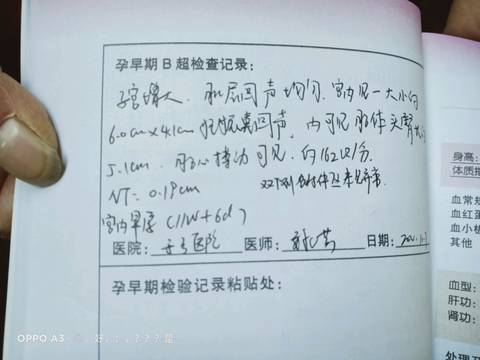 孕早期B超检查记录:
子宫增大, 肌层回声均匀. 宫内见一大小约
6.0cm×4.1cm妊娠囊回声, 内可见胎体头臀长约
5.1cm. 胎心搏动可见. 约162次/分.
NT: 0.19cm
宫内早孕 (11W+6d)
医院: 医院 医师: 日期:
孕早期检验记录粘贴处:
身高:
体质指
血常规
血红蛋
血小板
其他
血型:
肝功:
肾功:
处理及
OPPO A3